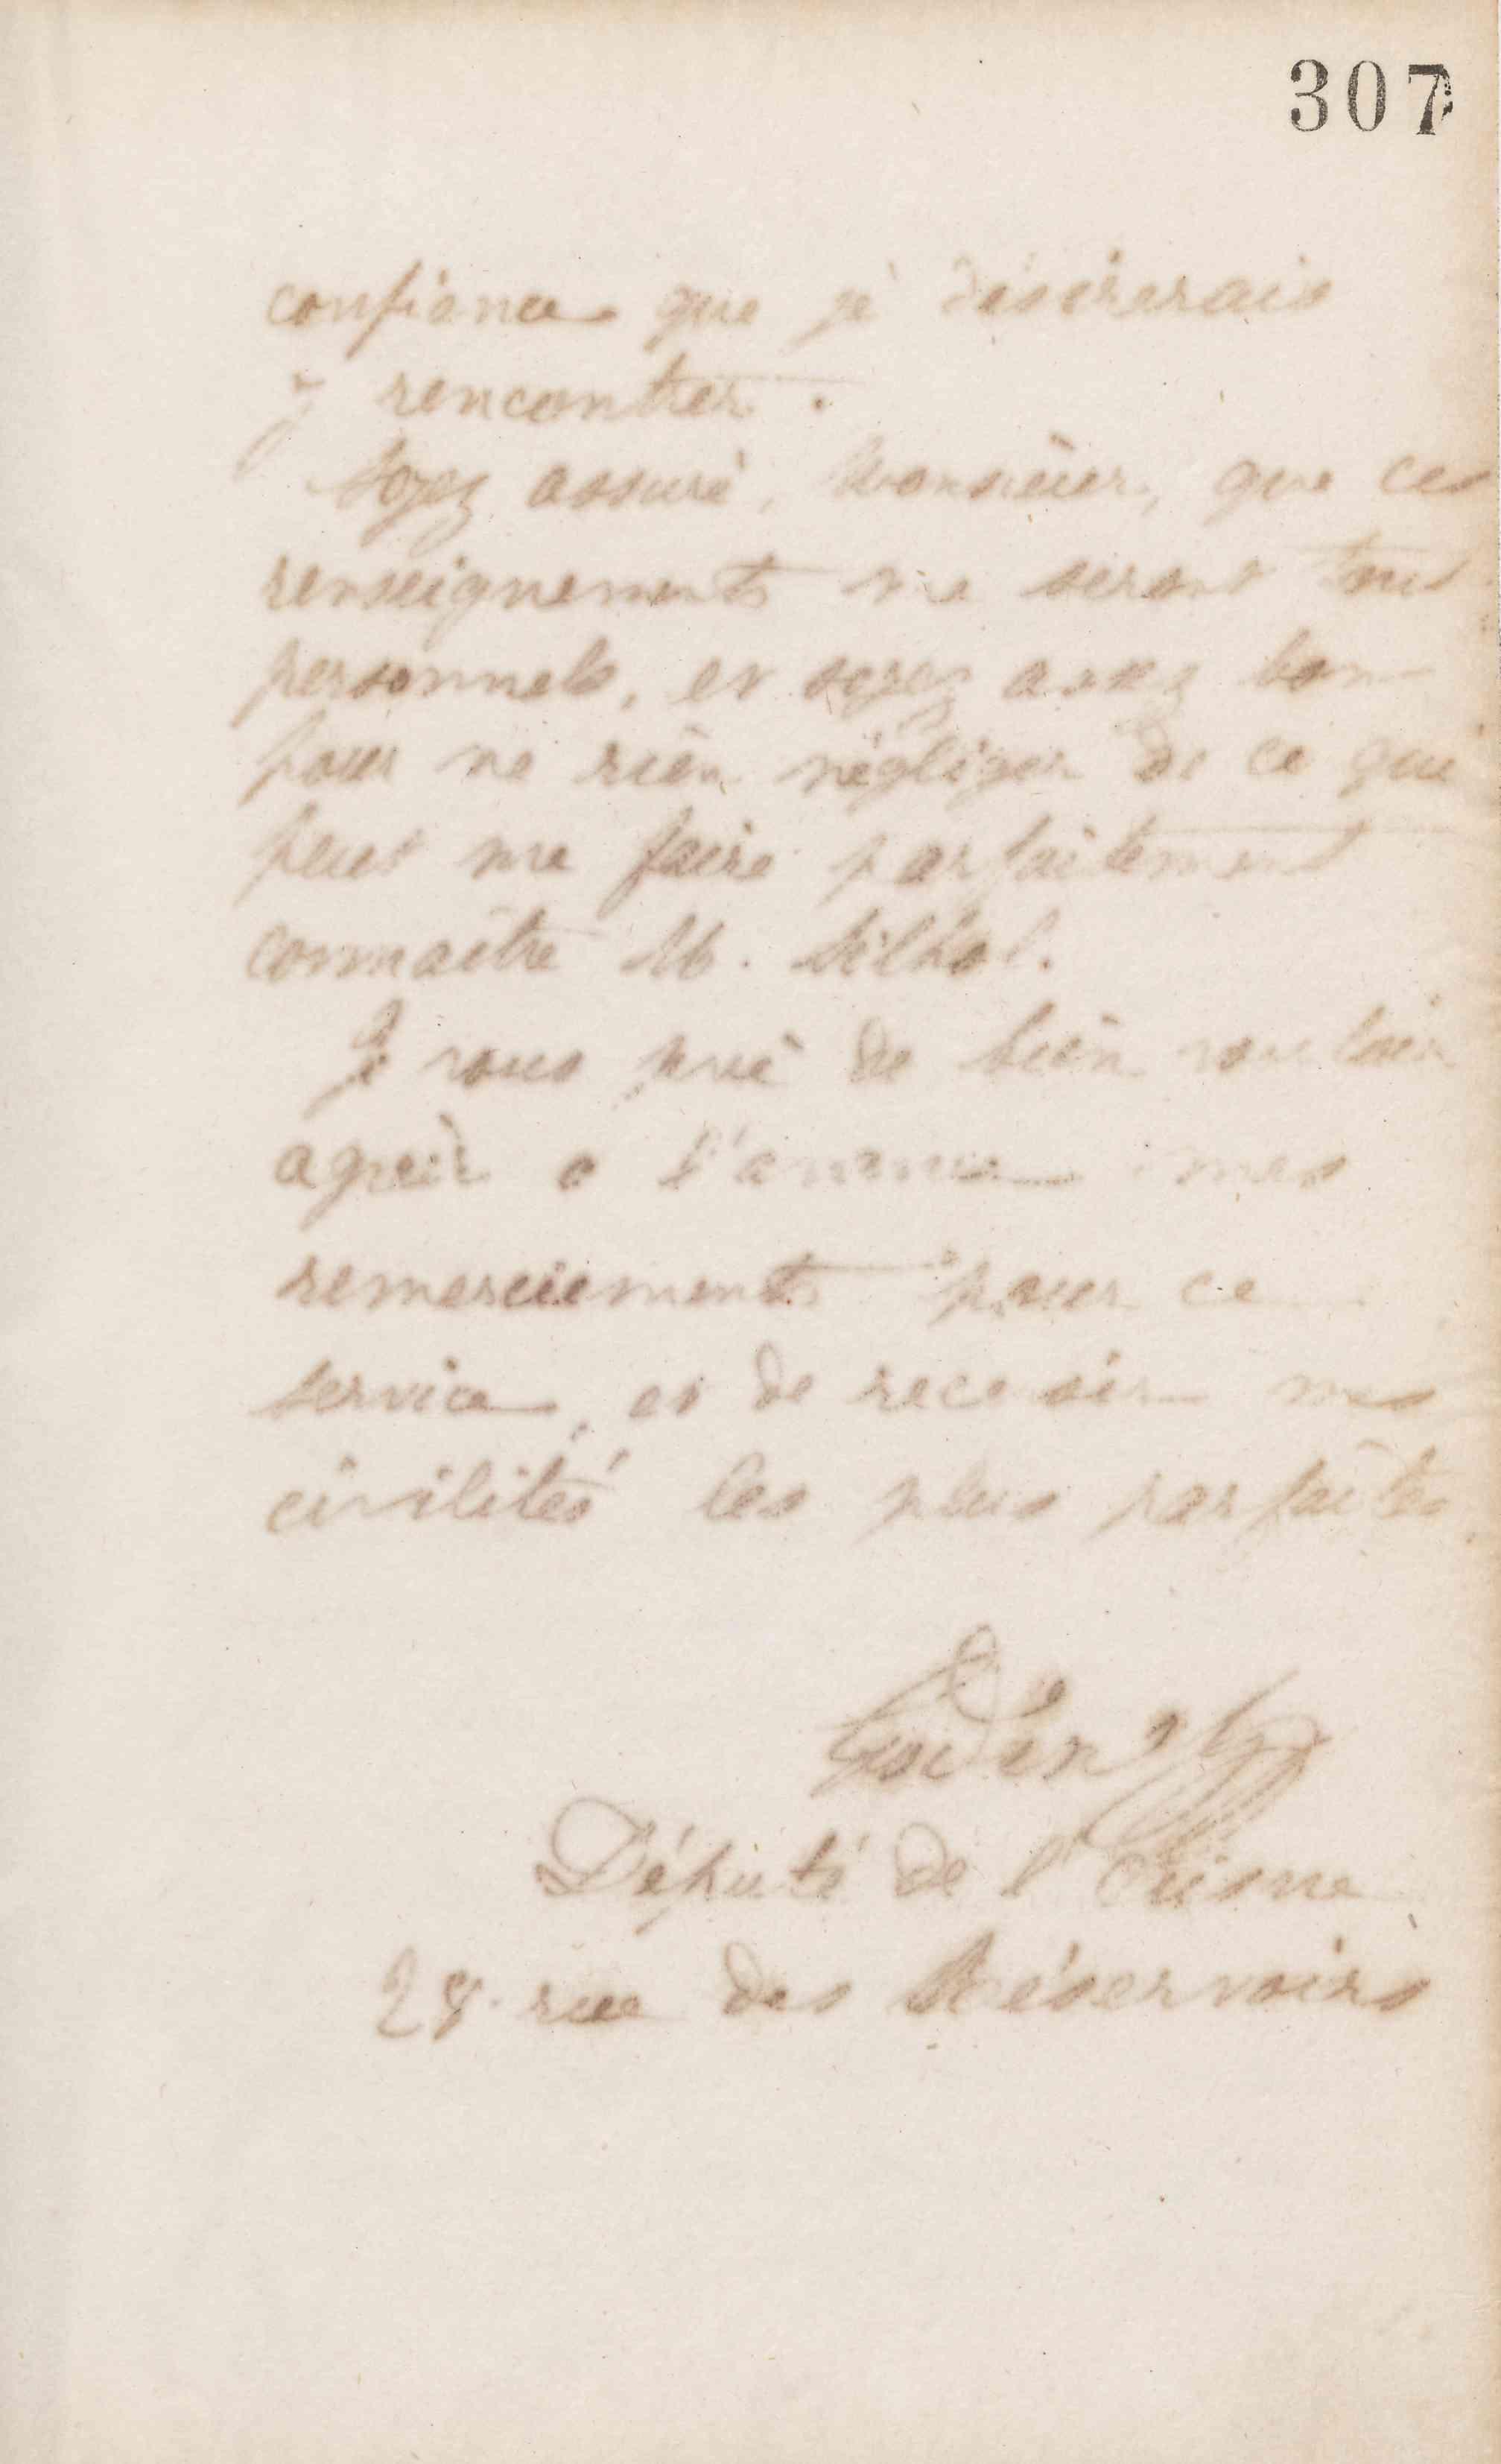 307
confiance que je désirerais
y rencontrer.
Soyez assuré, Monsieur, que ces
renseignements me seront tout
personnels, et soyez assez bon
pour ne rien négliger de ce qui
peut me faire parfaitement
connaître M. Silhol.
Je vous prie de bien vouloir
agréer à l'avance mes
remerciements pour ce
service, et de recevoir mes
civilités les plus parfaites.
Godin
Député de l'Aisne
28 rue des Réservoirs